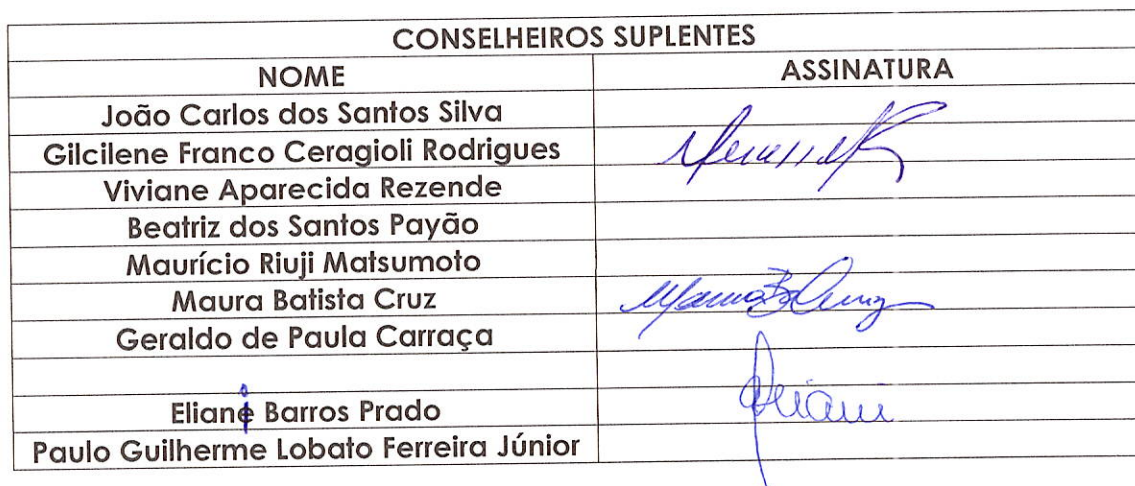 CONSELHEIROS SUPLENTES
NOME ASSINATURA
João Carlos dos Santos Silva
Gilcilene Franco Ceragioli Rodrigues
Viviane Aparecida Rezende
Beatriz dos Santos Payão
Maurício Riuji Matsumoto
Maura Batista Cruz Maura B Cruz
Geraldo de Paula Carraça
Eliani Barros Prado Eliani
Paulo Guilherme Lobato Ferreira Júnior